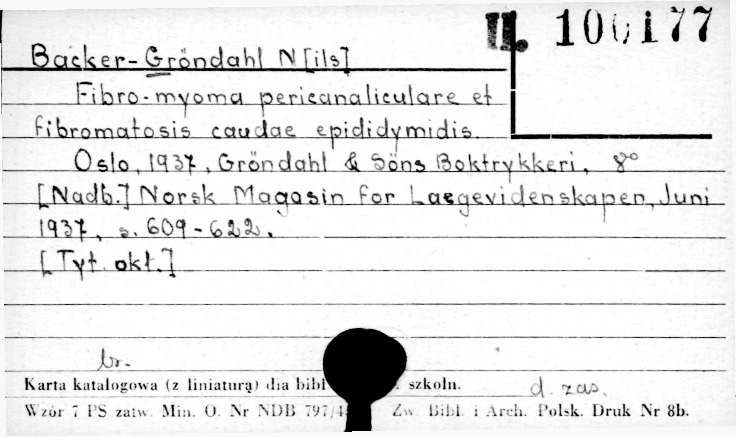 II. 100177
Backer-Gröndahl N[ils]
Fibro-myoma pericanaliculare et
fibromatosis caudae epididymidis.
Oslo, 1937, Gröndahl & Söns Boktrykkeri, 8°
[Nadb.] Norsk Magasin for Laegevidenskapen, Juni
1937, s. 609-622.
[Tyt. okł.]
br.
Karta katalogowa (z liniaturą) dla bibl szkoln.
d. zas.
Wzór 7 PS zatw. Min. O. Nr NDB 797/4 Zw. Bibl. i Arch. Polsk. Druk Nr 8b.